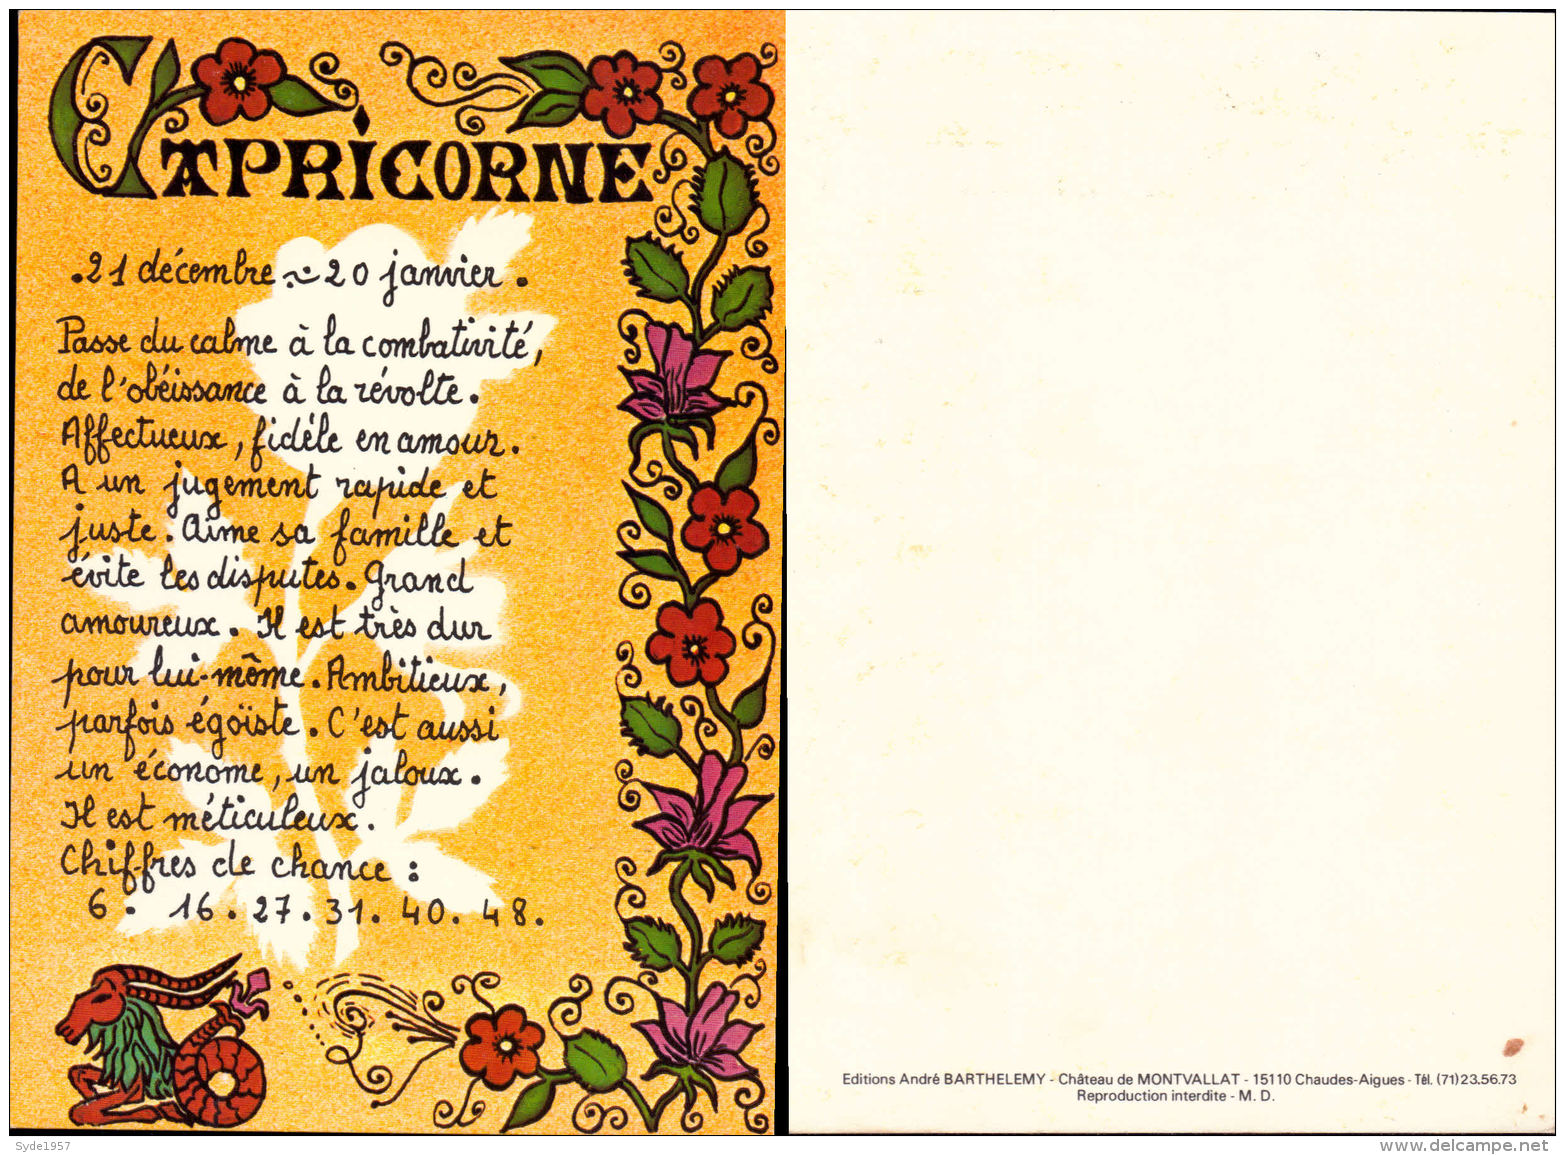 CAPRICORNE
.21 décembre ~ 20 janvier.
Passe du calme à la combativité,
de l'obéissance à la révolte.
Affectueux, fidèle en amour.
A un jugement rapide et
juste. Aime sa famille et
évite les disputes. Grand
amoureux. Il est très dur
pour lui-même. Ambitieux,
parfois égoïste. C'est aussi
un économe, un jaloux.
Il est méticuleux.
Chiffres de chance :
6. 16. 27. 31. 40. 48.
Editions André BARTHELEMY - Château de MONTVALLAT - 15110 Chaudes-Aigues - Tél. (71) 23.56.73
Reproduction interdite - M. D.
Syde1957
www.delcampe.net